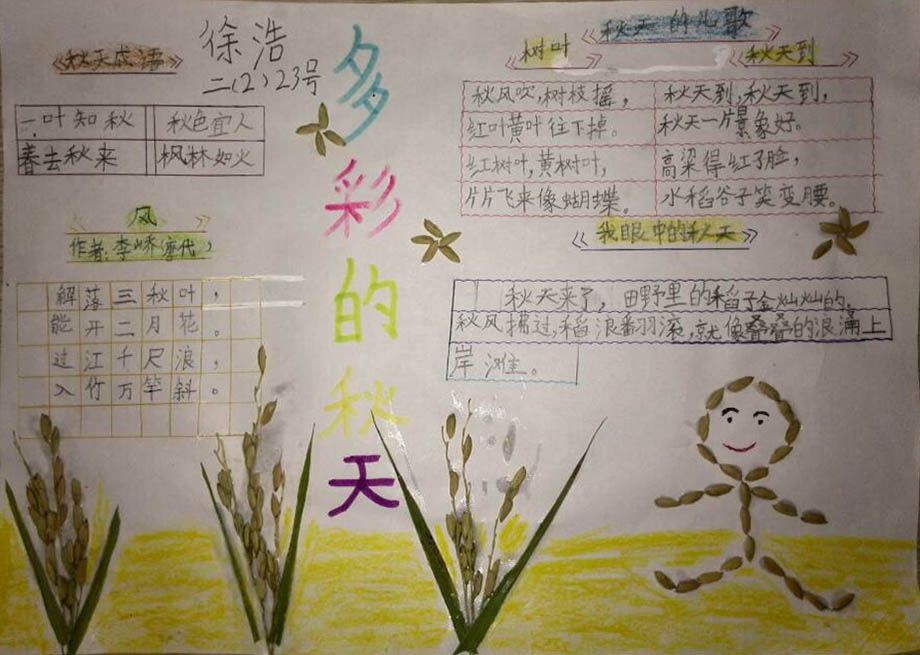 徐浩
二(2)23号
多彩的秋天
秋天成语
一叶知秋 秋色宜人
春去秋来 枫林如火
风
作者:李峤(唐代)
解落三秋叶，
能开二月花。
过江千尺浪，
入竹万竿斜。
秋天的儿歌
树叶
秋风吹,树枝摇，
红叶黄叶往下掉。
红树叶,黄树叶，
片片飞来像蝴蝶。
秋天到
秋天到,秋天到，
秋天一片景象好。
高梁得红了脸，
水稻谷子笑变腰。
我眼中的秋天
秋天来了，田野里的稻子金灿灿的。
秋风拂过,稻浪翻滚,就像叠叠的浪涌上
岸滩。